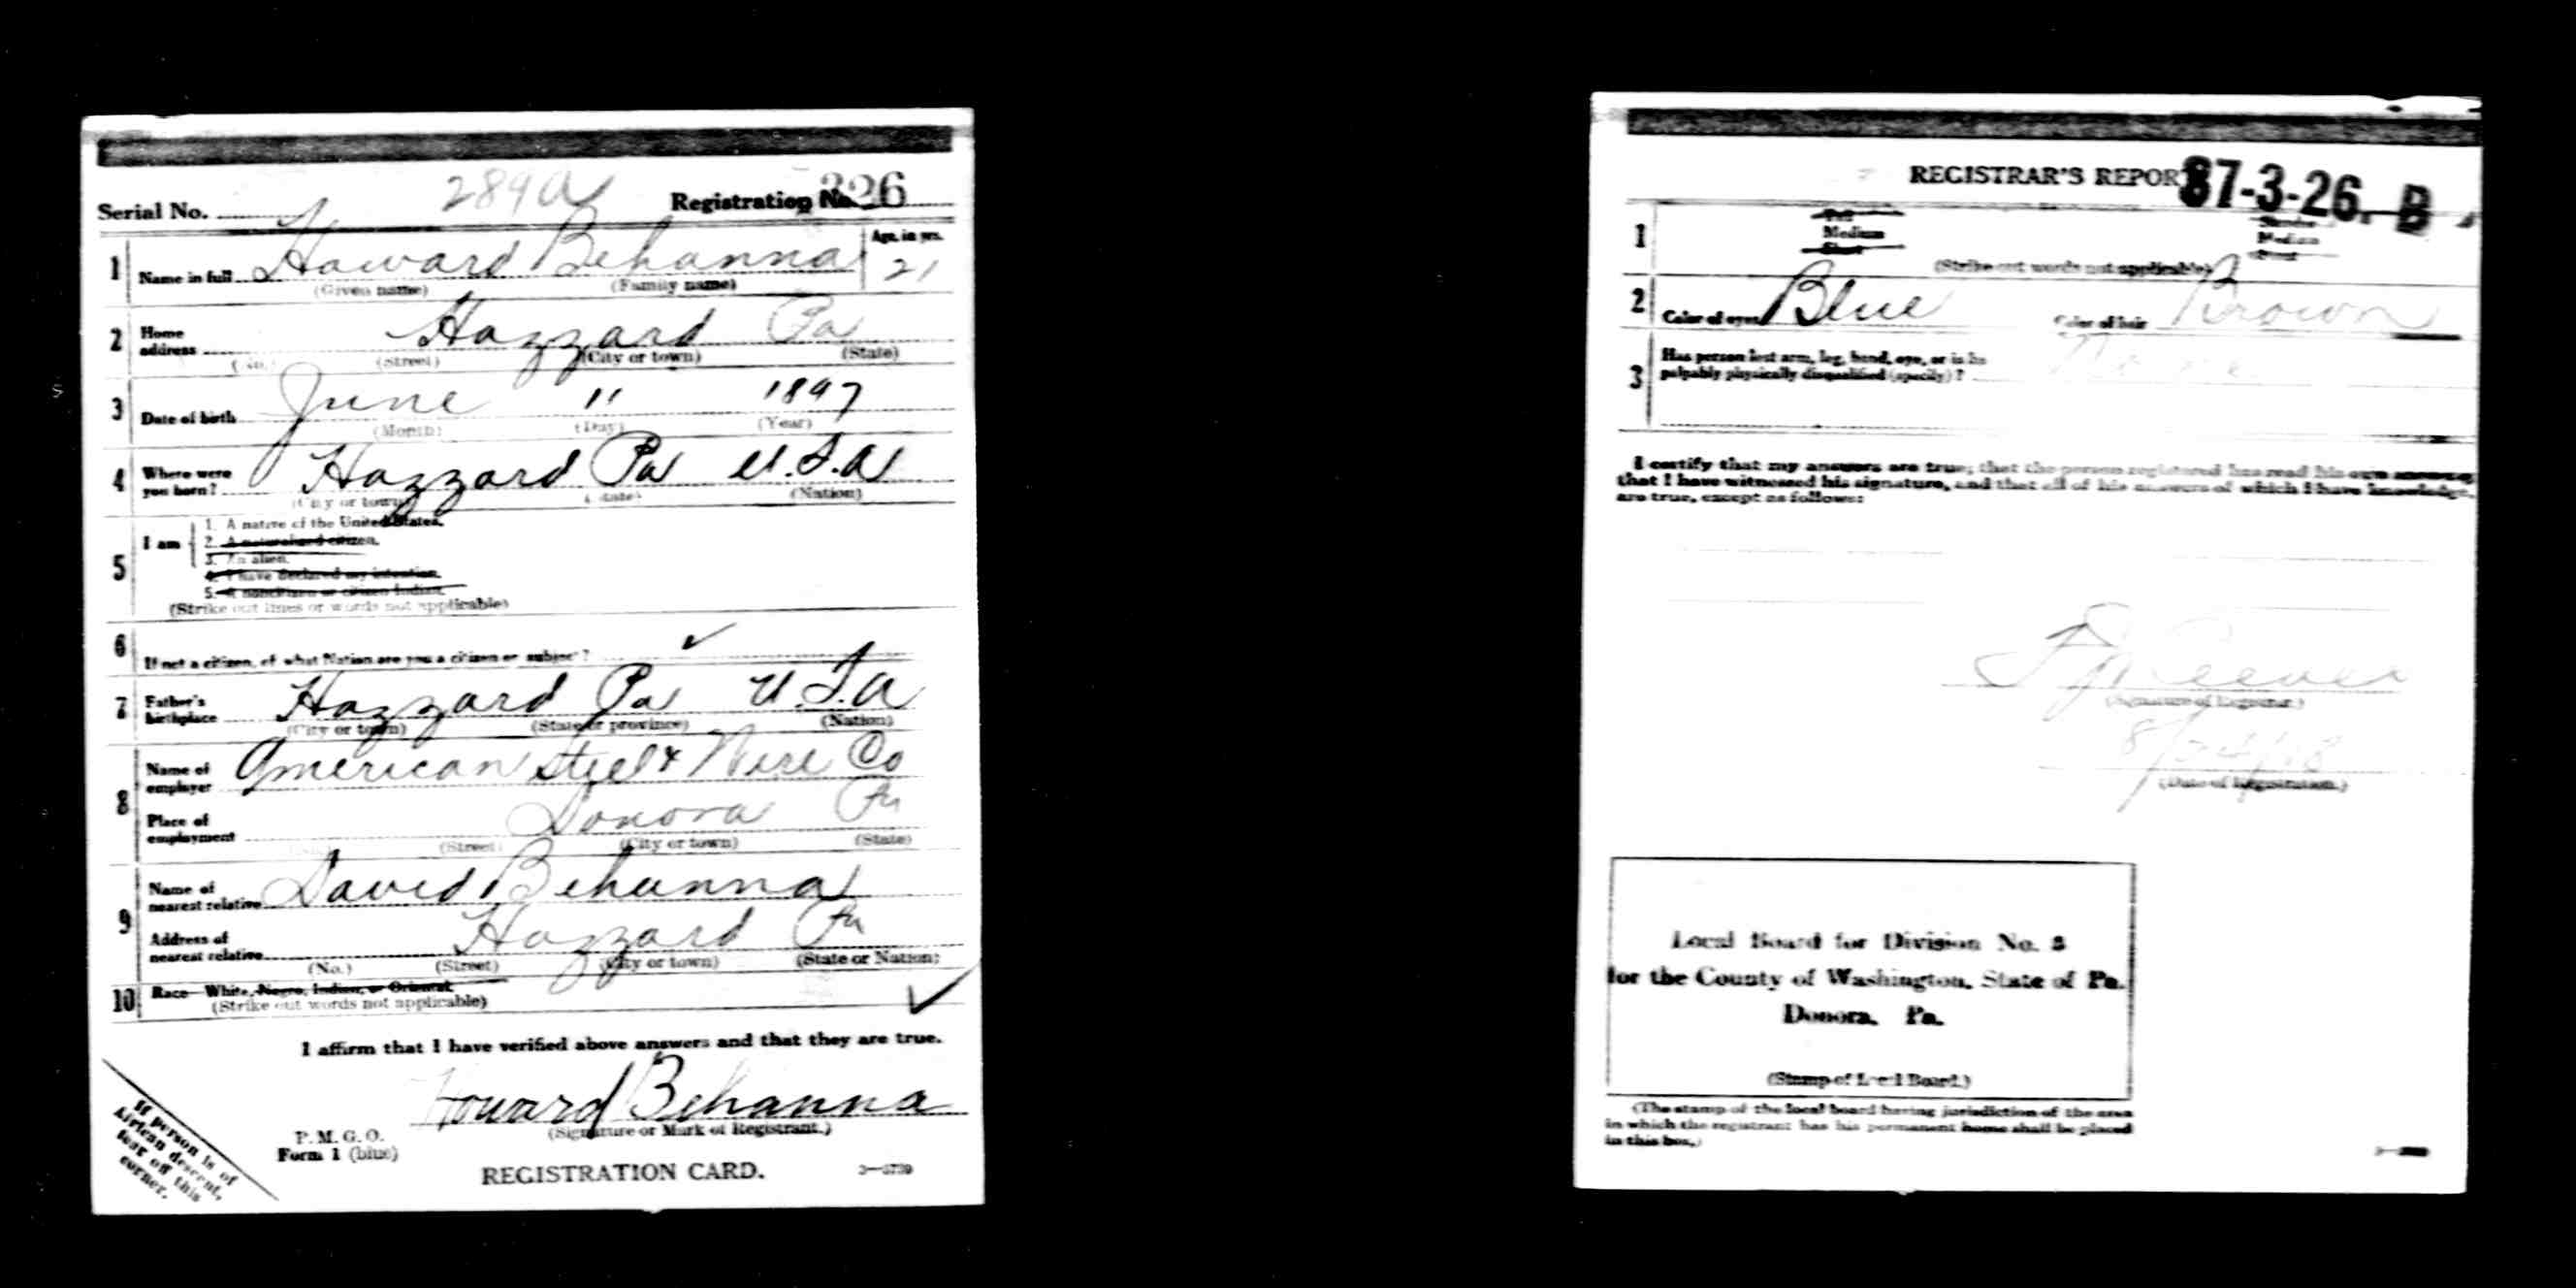 Serial No. 289a Registration No. 326
1 Name in full Howard Behanna Age, in yrs. 21
(Given name) (Family name)
2 Home address Hazzard Pa
(No.) (Street) (City or town) (State)
3 Date of birth June 11 1897
(Month) (Day) (Year)
4 Where were you born? Hazzard Pa U.S.A
(City or town) (State) (Nation)
5 I am
1. A native of the United States.
2. A naturalized citizen.
3. An alien.
4. I have declared my intention.
5. A noncitizen or citizen Indian.
(Strike out lines or words not applicable)
6 If not a citizen, of what Nation are you a citizen or subject? ✓
7 Father's birthplace Hazzard Pa U.S.A
(City or town) (State or province) (Nation)
8 Name of employer American Steel & Wire Co
Place of employment Donora Pa
(Street) (City or town) (State)
9 Name of nearest relative David Behanna
Address of nearest relative Hazzard Pa
(No.) (Street) (City or town) (State or Nation)
10 Race—White, Negro, Indian, or Oriental ✓
(Strike out words not applicable)
I affirm that I have verified above answers and that they are true.
Howard Behanna
(Signature or Mark of Registrant.)
P. M. G. O.
Form 1 (blue)
REGISTRATION CARD.
If person is of
African descent,
tear off this
corner.
REGISTRAR'S REPORT 37-3-26. B
1 Tall Slender
Medium Medium
Short Stout
(Strike out words not applicable)
2 Color of eyes Blue Color of hair Brown
3 Has person lost arm, leg, hand, eye, or is he
palpably physically disqualified (specify)? None
I certify that my answers are true; that the person registered has read his own answers;
that I have witnessed his signature, and that all of his answers of which I have knowledge
are true, except as follows:
(Signature of Registrar.)
8/24/18
(Date of Registration.)
Local Board for Division No. 3
for the County of Washington, State of Pa.
Donora, Pa.
(Stamp of Local Board.)
(The stamp of the local board having jurisdiction of the area
in which the registrant has his permanent home shall be placed
in this box.)